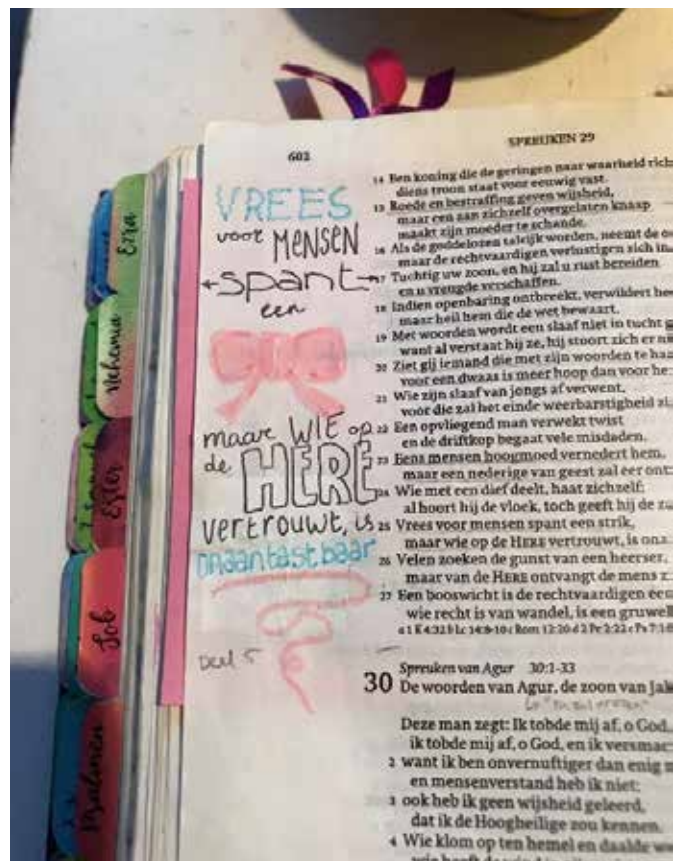 602
SPREUKEN 29
Ezra
Nehemia
Ester
Job
Psalmen
VREES
voor MENSEN
spant
een
maar WIE op
de HERE
vertrouwt, is
onaantastbaar
Deel 5
14 Een koning die de geringen naar waarheid
diens troon staat voor eeuwig vast.
15 Roede en bestraffing geven wijsheid,
maar een aan zichzelf overgelaten knaap
maakt zijn moeder te schande.
16 Als de goddelozen talrijk worden, neemt de
maar de rechtvaardigen verlustigen zich in
17 Tuchtig uw zoon, en hij zal u rust bereiden
en u vreugde verschaffen.
18 Indien openbaring ontbreekt, verwildert
maar heil hem die de wet bewaart.
19 Met woorden wordt een slaaf niet in tucht
want al verstaat hij ze, hij stoort zich er
20 Ziet gij iemand die met zijn woorden te
voor een dwaas is meer hoop dan voor
21 Wie zijn slaaf van jongs af verwent,
voor die zal het einde weerbarstigheid
22 Een opvliegend man verwekt twist
en de driftkop begaat vele misdaden.
23 Eens mensen hoogmoed vernedert hem,
maar een nederige van geest zal eer
24 Wie met een dief deelt, haat zichzelf;
al hoort hij de vloek, toch geeft hij de
25 Vrees voor mensen spant een strik,
maar wie op de HERE vertrouwt, is
26 Velen zoeken de gunst van een heerser,
maar van de HERE ontvangt de mens
27 Een booswicht is de rechtvaardigen een
wie recht is van wandel, is een gruwel
Spreuken van Agur 30:1-33
30 De woorden van Agur, de zoon van
Deze man zegt: Ik tobde mij af, o God,
ik tobde mij af, o God, en ik
2 want ik ben onvernuftiger dan enig
en mensenverstand heb ik niet;
3 ook heb ik geen wijsheid geleerd,
dat ik de Hoogheilige zou kennen.
4 Wie klom op ten hemel en daalde